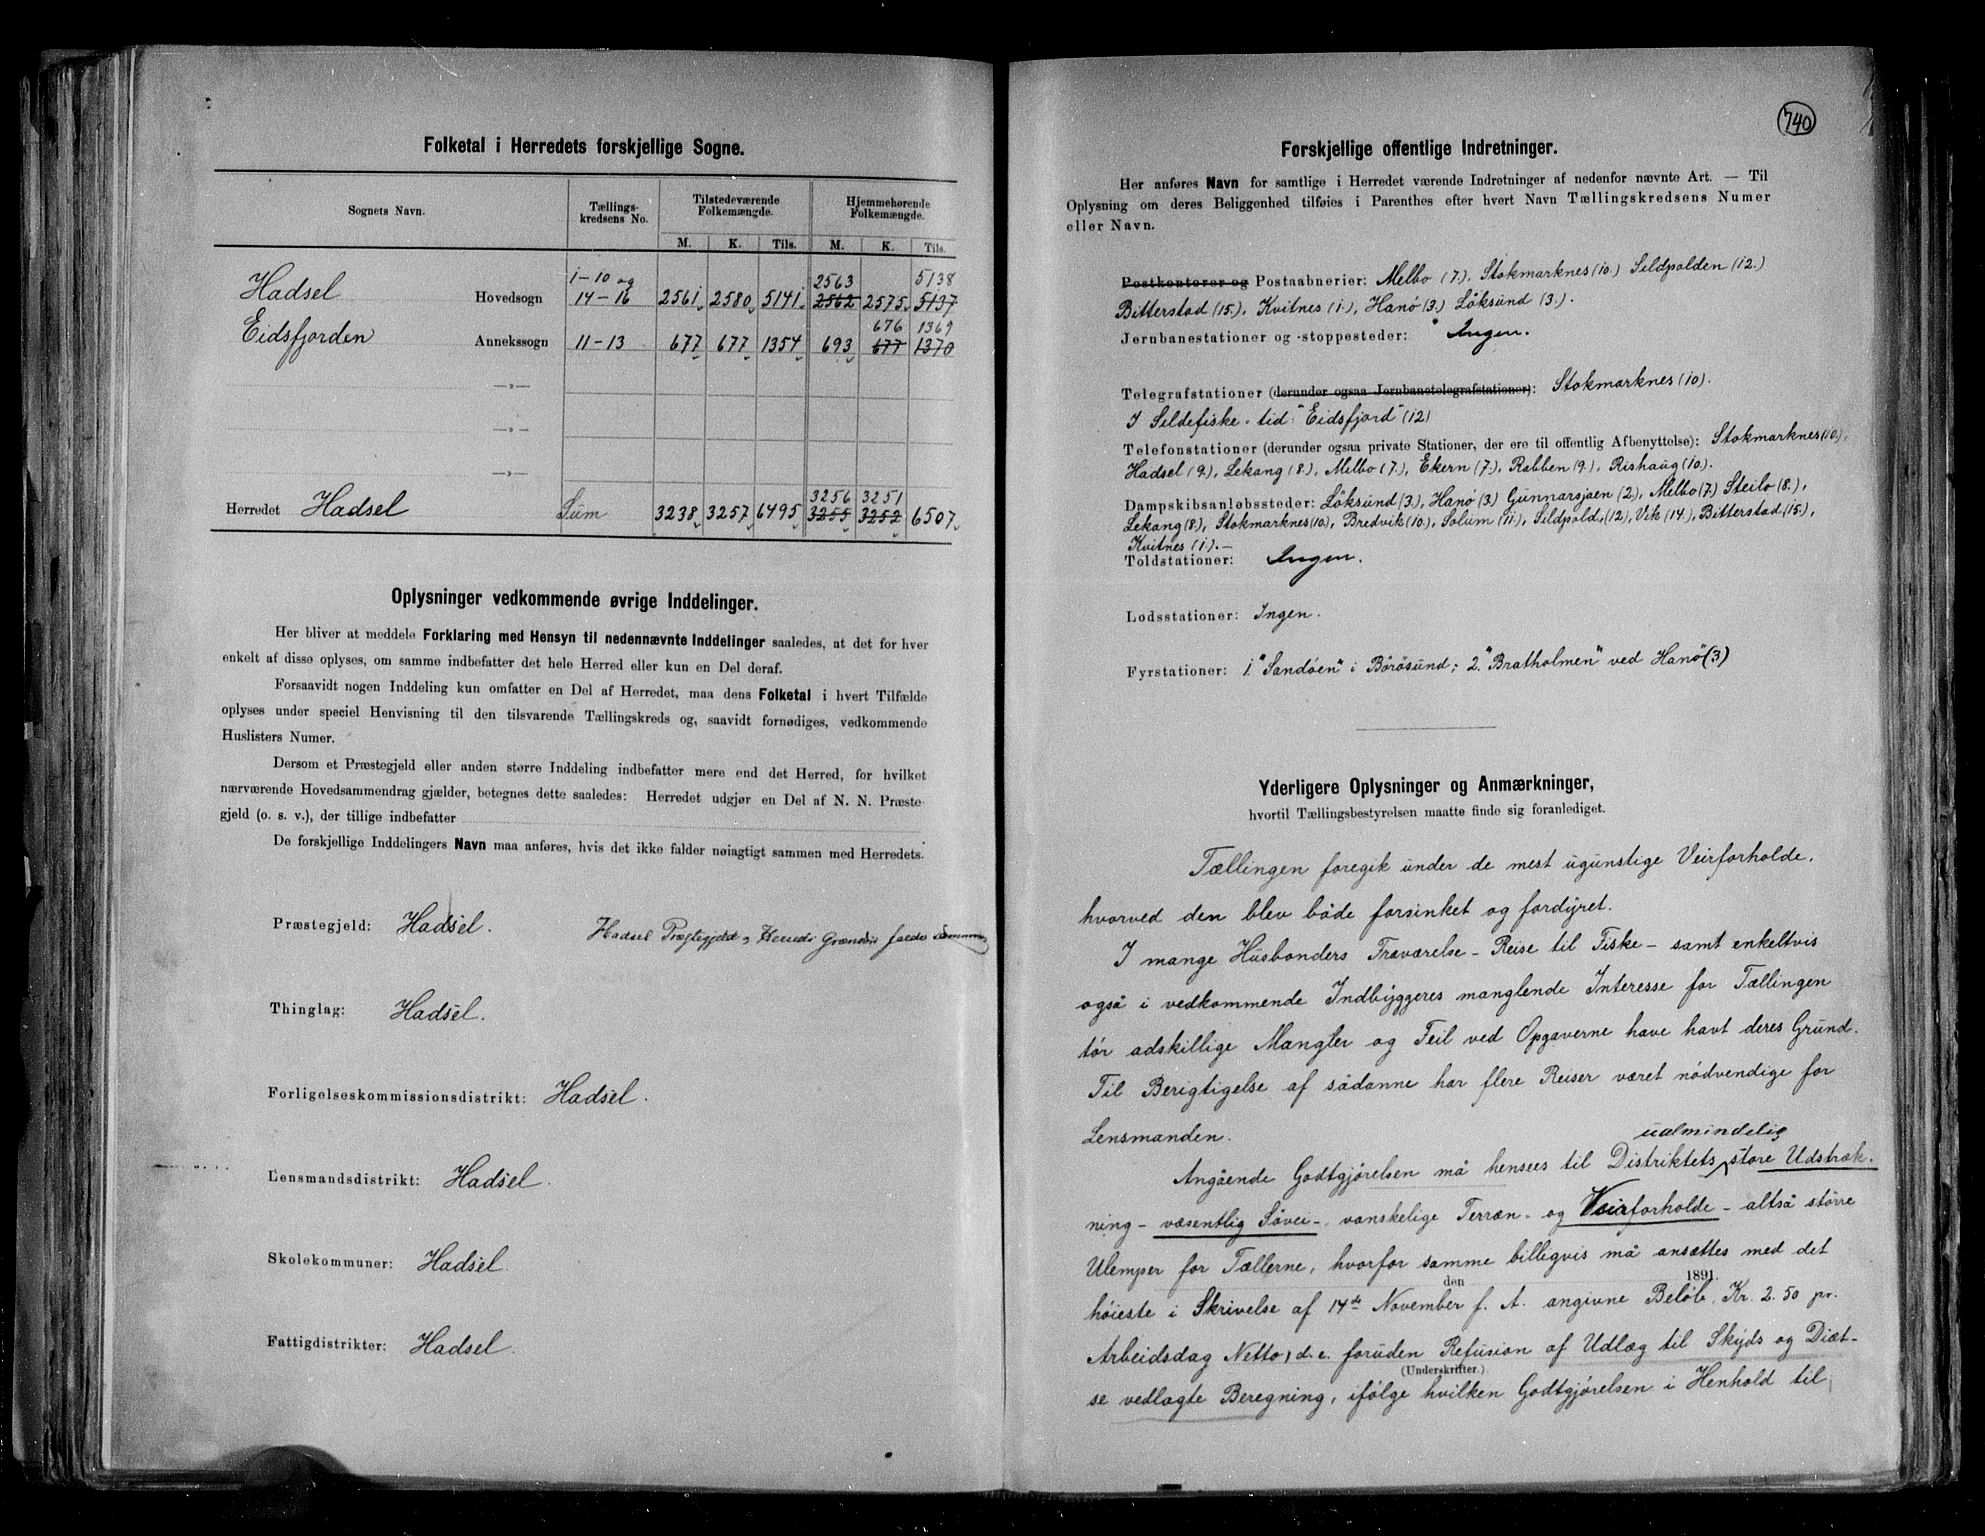 Folketal i Herredets forskjellige Sogne.
Sognets Navn. Tællings-kredsens No. Tilstedeværende Folkemængde. Hjemmehørende Folkemængde.
M. K. Tils. M. K. Tils.
1-10 og 2563 5138
Hadsel Hovedsogn 14-16 2561 2580 5141 2562 2575 5137
676 1369
Eidsfjorden Annekssogn 11-13 677 677 1354 693 677 1370
—„—
—„—
—„—
3256 3251
Herredet Hadsel Sum 3238 3257 6495 3255 3252 6507
Oplysninger vedkommende øvrige Inddelinger.
Her bliver at meddele Forklaring med Hensyn til nedennævnte Inddelinger saaledes, at det for hver
enkelt af disse oplyses, om samme indbefatter det hele Herred eller kun en Del deraf.
Forsaavidt nogen Inddeling kun omfatter en Del af Herredet, maa dens Folketal i hvert Tilfælde
oplyses under speciel Henvisning til den tilsvarende Tællingskreds og, saavidt fornødiges, vedkommende
Huslisters Numer.
Dersom et Præstegjeld eller anden større Inddeling indbefatter mere end det Herred, for hvilket
nærværende Hovedsammendrag gjælder, betegnes dette saaledes: Herredet udgjør en Del af N. N. Præste-
gjeld (o. s. v.), der tillige indbefatter
De forskjellige Inddelingers Navn maa anføres, hvis det ikke falder nøiagtigt sammen med Herredets.
Præstegjeld: Hadsel. Hadsel Præstegjeld og Herreds Grændser falde sammen
Thinglag: Hadsel.
Forligelseskommissionsdistrikt: Hadsel.
Lensmandsdistrikt: Hadsel.
Skolekommuner: Hadsel.
Fattigdistrikter: Hadsel.
740
Forskjellige offentlige Indretninger.
Her anføres Navn for samtlige i Herredet værende Indretninger af nedenfor nævnte Art. — Til
Oplysning om deres Beliggenhed tilføies i Parenthes efter hvert Navn Tællingskredsens Numer
eller Navn.
Postkontorer og Postaabnerier: Melbo (7.), Stokmarknes (10.) Sildpolden (12.)
Bitterstad (15.), Kvitnes (1.), Hanö (3.) Löksund (3.).
Jernbanestationer og -stoppesteder: Ingen.
Telegrafstationer (derunder ogsaa Jernbanetelegrafstationer): Stokmarknes (10).
I Sildefiske-tid: "Eidsfjord" (12)
Telefonstationer (derunder ogsaa private Stationer, der ere til offentlig Afbenyttelse): Stokmarknes (10.),
Hadsel (9.), Lekang (8.), Melbo (7.), Ekern (7.), Rabben (9.), Rishaug (10.).
Dampskibsanløbssteder: Löksund (3.), Hanö (3.) Gunnarsjøen (2.), Melbo (7.) Steilo (8.),
Lekang (8.), Stokmarknes (10.), Bredvik (10.), Solum (11.), Sildpold. (12), Vik (14.), Bitterstad (15.),
Kvitnes (1.).—
Toldstationer: Ingen.
Lodsstationer: Ingen.
Fyrstationer: 1. "Sandöen" i Börösund; 2. "Bratholmen" ved Hanö (3)
Yderligere Oplysninger og Anmærkninger,
hvortil Tællingsbestyrelsen maatte finde sig foranlediget.
Tællingen foregik under de mest ugunstige Veirforholde,
hvorved den blev både forsinket og fordyret.
I mange Husbonders Fraværelse - Reise til Fiske - samt enkeltvis
også i vedkommende Indbyggeres manglende Interesse for Tællingen
tör adskillige Mangler og Feil ved Opgaverne have havt deres Grund.
Til Berigtigelse af sådanne har flere Reiser været nödvendige for
Lensmanden.
ualmindelig
Angående Godtgjörelsen må hensees til Distriktets store Udstræk-
ning - væsentlig Sövei - vanskelige Terræn - og Veirforholde - altså större
Ulemper for Tællerne, hvorfor samme billigvis må ansættes med det
den 1891.
höieste i Skrivelse af 14de November f. A. angivne Belöb, Kr. 2.50 pr.
Arbeidsdag Netto, d. e. foruden Refusion af Udlæg til Skyds og Diæt-
(Underskrifter.)
se vedlagte Beregning, ifölge hvilken Godtgjörelsen i Henhold til